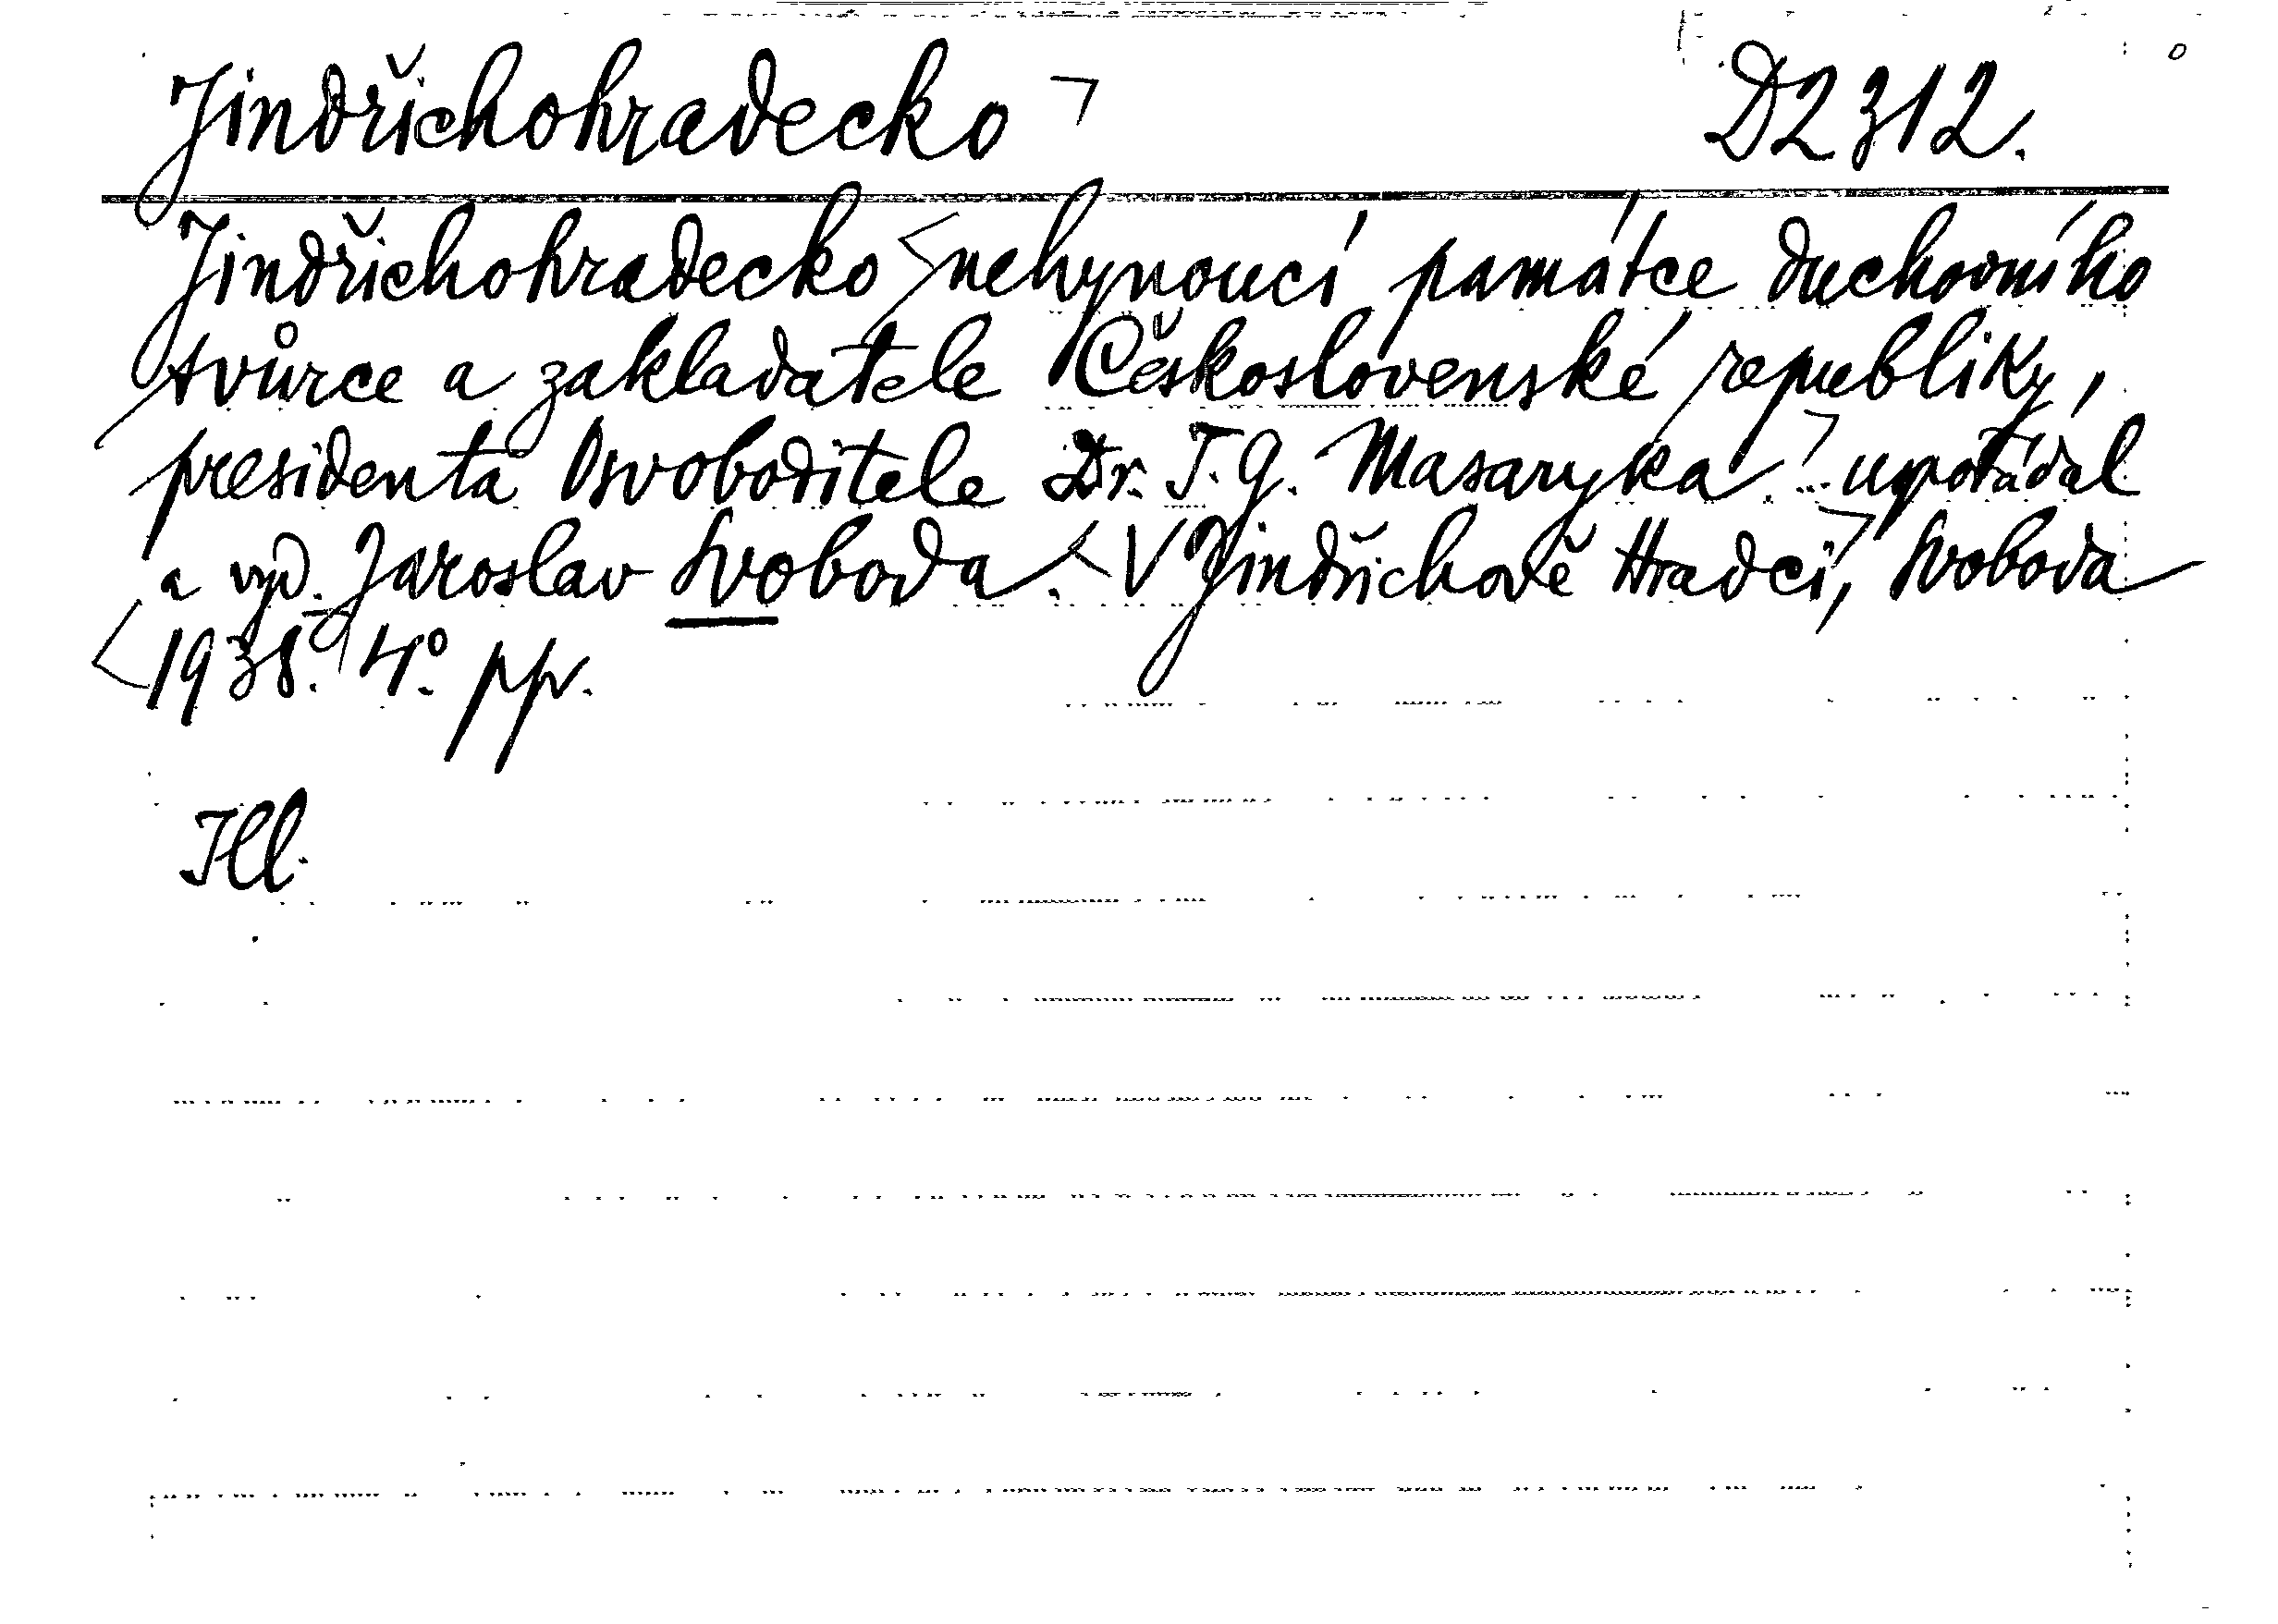 Jindřichohradecko D2312.
Jindřichohradecko nehynoucí památce duchovního
tvůrce a zakladatele Československé republiky,
presidenta Osvoboditele Dr. T. G. Masaryka. upořádal
a vyd. Jaroslav Svoboda. V Jindřichově Hradci, Svoboda
1938. 4°. pp.
Ill.